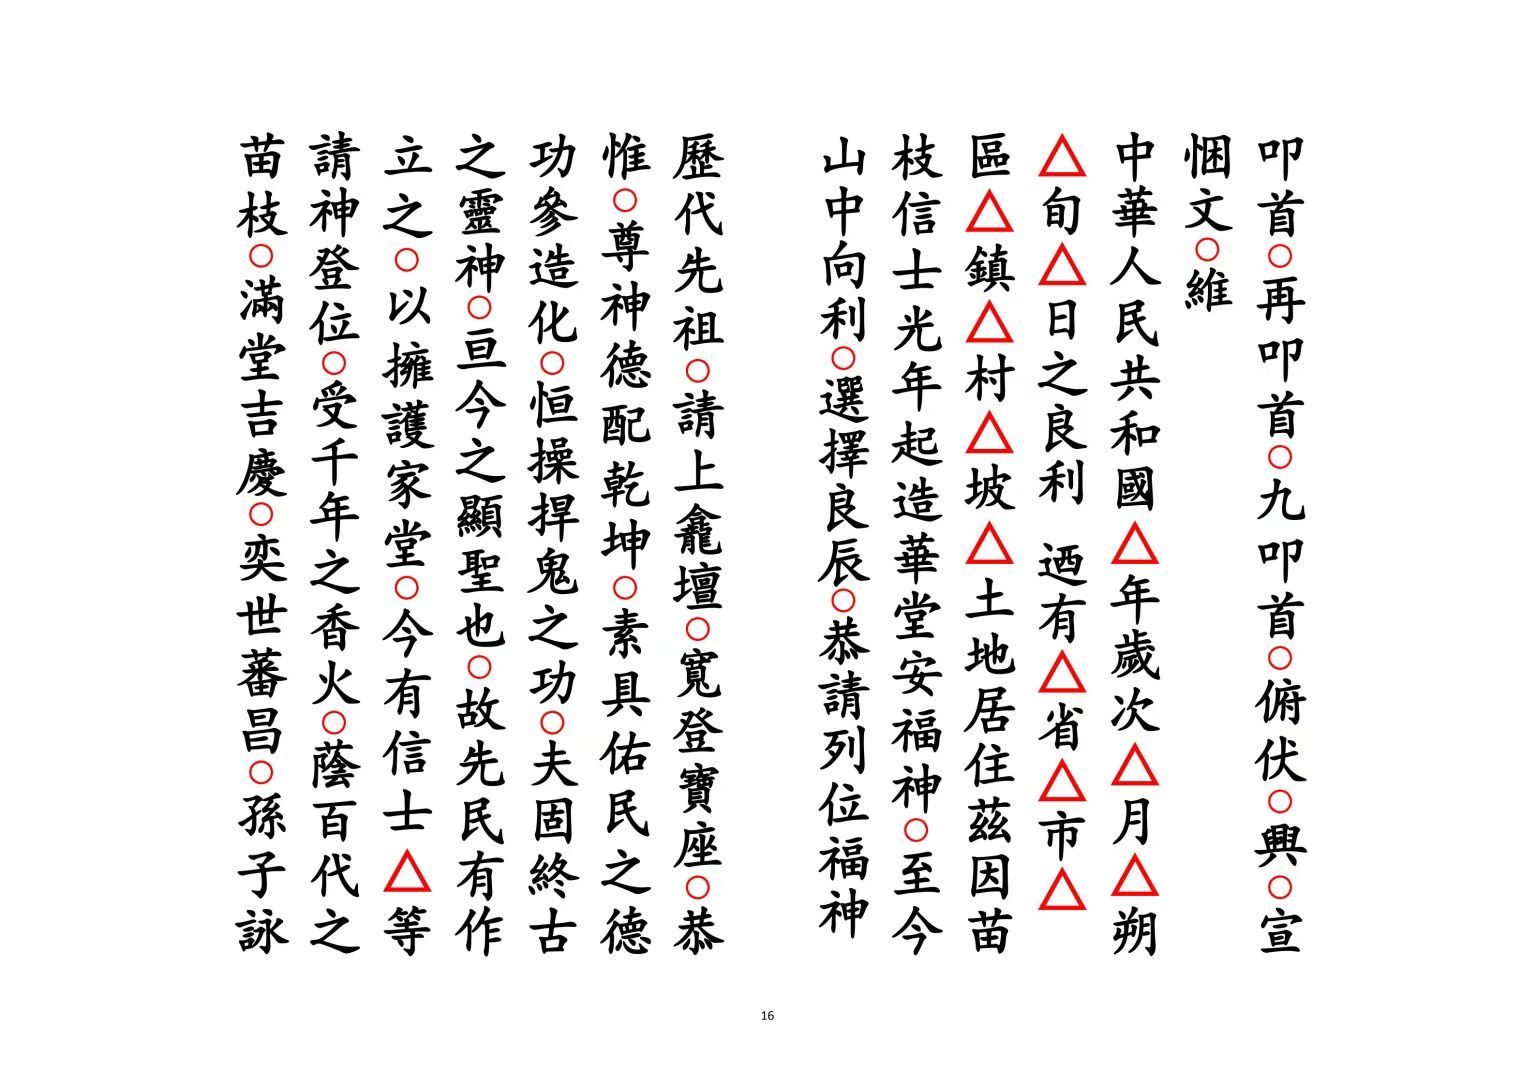 叩首○再叩首○九叩首○俯伏○興○宣
悃文○維
中華人民共和國△年歲次△月△朔
△旬△日之良利 迺有△省△市△
區△鎮△村△坡△土地居住茲因苗
枝信士光年起造華堂安福神○至今
山中向利○選擇良辰○恭請列位福神
歷代先祖○請上龕壇○寬登寶座○恭
惟○尊神德配乾坤○素具佑民之德
功參造化○恒操捍鬼之功○夫固終古
之靈神○亘今之顯聖也○故先民有作
立之○以擁護家堂○今有信士△等
請神登位○受千年之香火○蔭百代之
苗枝○滿堂吉慶○奕世蕃昌○孫子詠
16